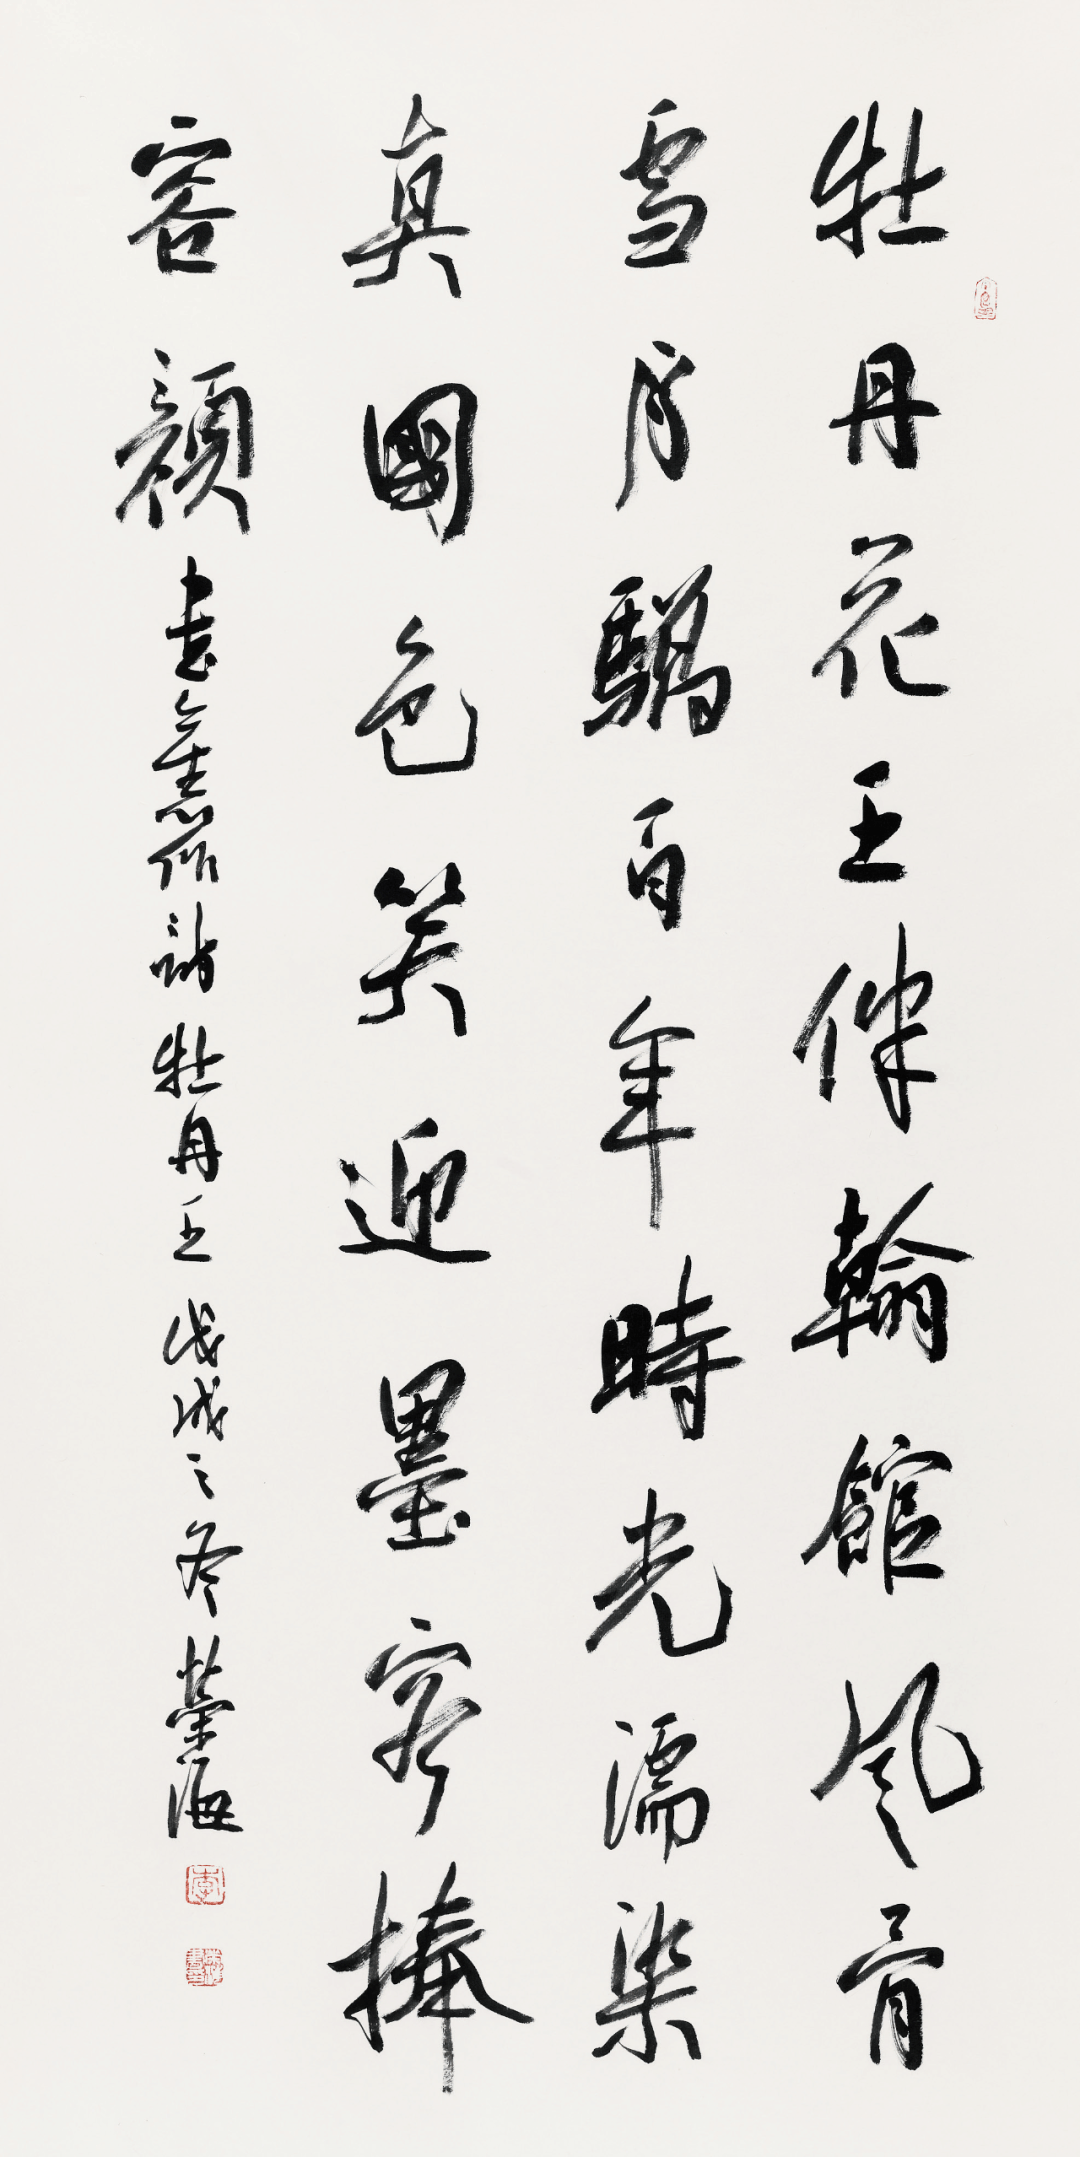 牡丹花王伴翰館風骨
雪月驕百年時光濡染
真國色笑迎墨客捧
容顏書舊作詩牡丹王戊戌之冬榮海